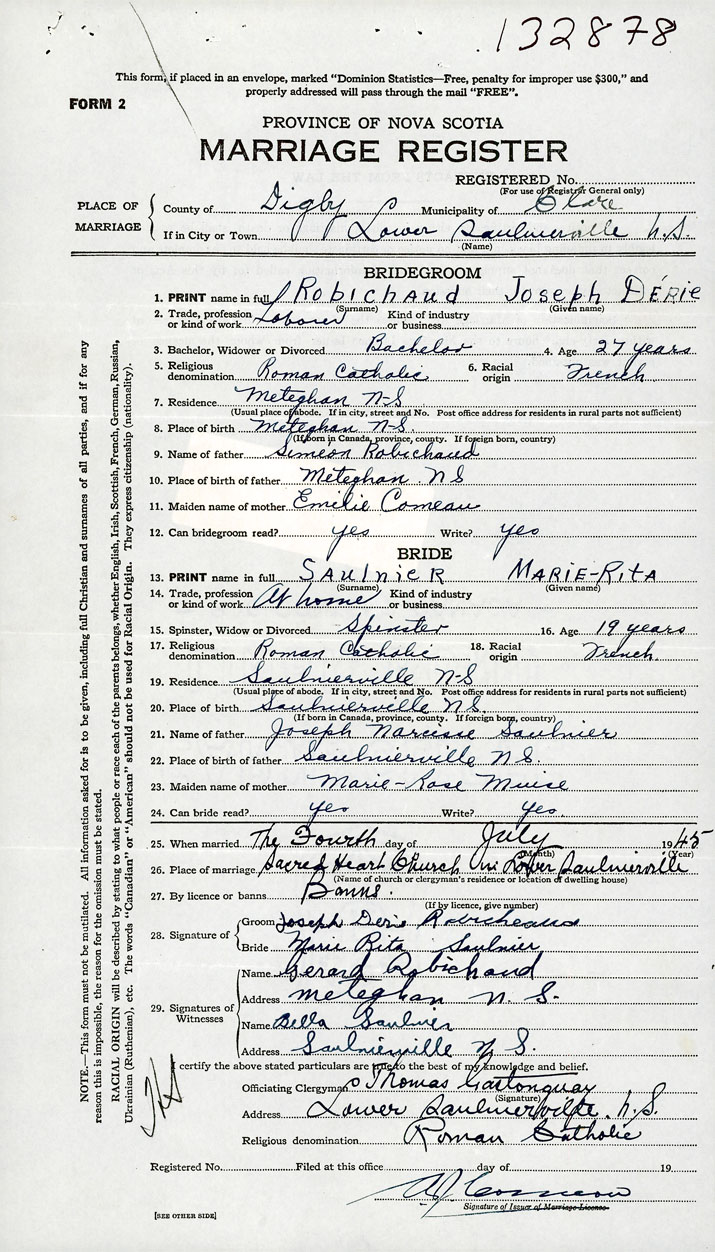 132878
This form, if placed in an envelope, marked "Dominion Statistics—Free, penalty for improper use $300," and
properly addressed will pass through the mail "FREE".
FORM 2
PROVINCE OF NOVA SCOTIA
MARRIAGE REGISTER
REGISTERED No.
(For use of Registrar General only)
PLACE OF MARRIAGE
County of Digby Municipality of Clare
If in City or Town Lower Saulnierville N.S.
(Name)
BRIDEGROOM
1. PRINT name in full Robichaud Joseph Dérie
(Surname) (Given name)
2. Trade, profession or kind of work Laborer Kind of industry or business
3. Bachelor, Widower or Divorced Bachelor 4. Age 27 years
5. Religious denomination Roman Catholic 6. Racial origin French
7. Residence Meteghan N-S
(Usual place of abode. If in city, street and No. Post office address for residents in rural parts not sufficient)
8. Place of birth Meteghan N-S.
(If born in Canada, province, county. If foreign born, country)
9. Name of father Simeon Robichaud
10. Place of birth of father Meteghan. NS
11. Maiden name of mother Emilie Comeau
12. Can bridegroom read? yes Write? yes
BRIDE
13. PRINT name in full Saulnier Marie-Rita
(Surname) (Given name)
14. Trade, profession or kind of work At home Kind of industry or business
15. Spinster, Widow or Divorced Spinster 16. Age 19 years
17. Religious denomination Roman Catholic 18. Racial origin French.
19. Residence Saulnierville N-S
(Usual place of abode. If in city, street and No. Post office address for residents in rural parts not sufficient)
20. Place of birth Saulnierville N S.
(If born in Canada, province, county. If foreign born, country)
21. Name of father Joseph Narcisse Saulnier
22. Place of birth of father Saulnierville N S.
23. Maiden name of mother Marie-Rose Muise
24. Can bride read? yes Write? yes.
25. When married The Fourth day of July 1945
(Month) (Year)
26. Place of marriage Sacred Heart Church in Lower Saulnierville
(Name of church or clergyman's residence or location of dwelling house)
27. By licence or banns Banns.
(If by licence, give number)
28. Signature of
Groom Joseph Derie Robicheaud
Bride Marie Rita Saulnier
29. Signatures of Witnesses
Name Gerard Robichaud
Address Meteghan N. S.
Name Bella Saulnier
Address Saulnierville N S.
I certify the above stated particulars are true to the best of my knowledge and belief.
Officiating Clergyman Thomas Gastonguay
(Signature)
Address Lower Saulnierville, N.S.
Religious denomination Roman Catholic
Registered No. Filed at this office day of 19
Signature of Issuer of Marriage License
[SEE OTHER SIDE]
NOTE.—This form must not be mutilated. All information asked for is to be given, including full Christian and surnames of all parties, and if for any
reason this is impossible, the reason for the omission must be stated.
RACIAL ORIGIN will be described by stating to what people or race each of the parents belongs, whether English, Irish, Scottish, French, German, Russian,
Ukrainian (Ruthenian), etc. The words "Canadian" or "American" should not be used for Racial Origin. They express citizenship (nationality).